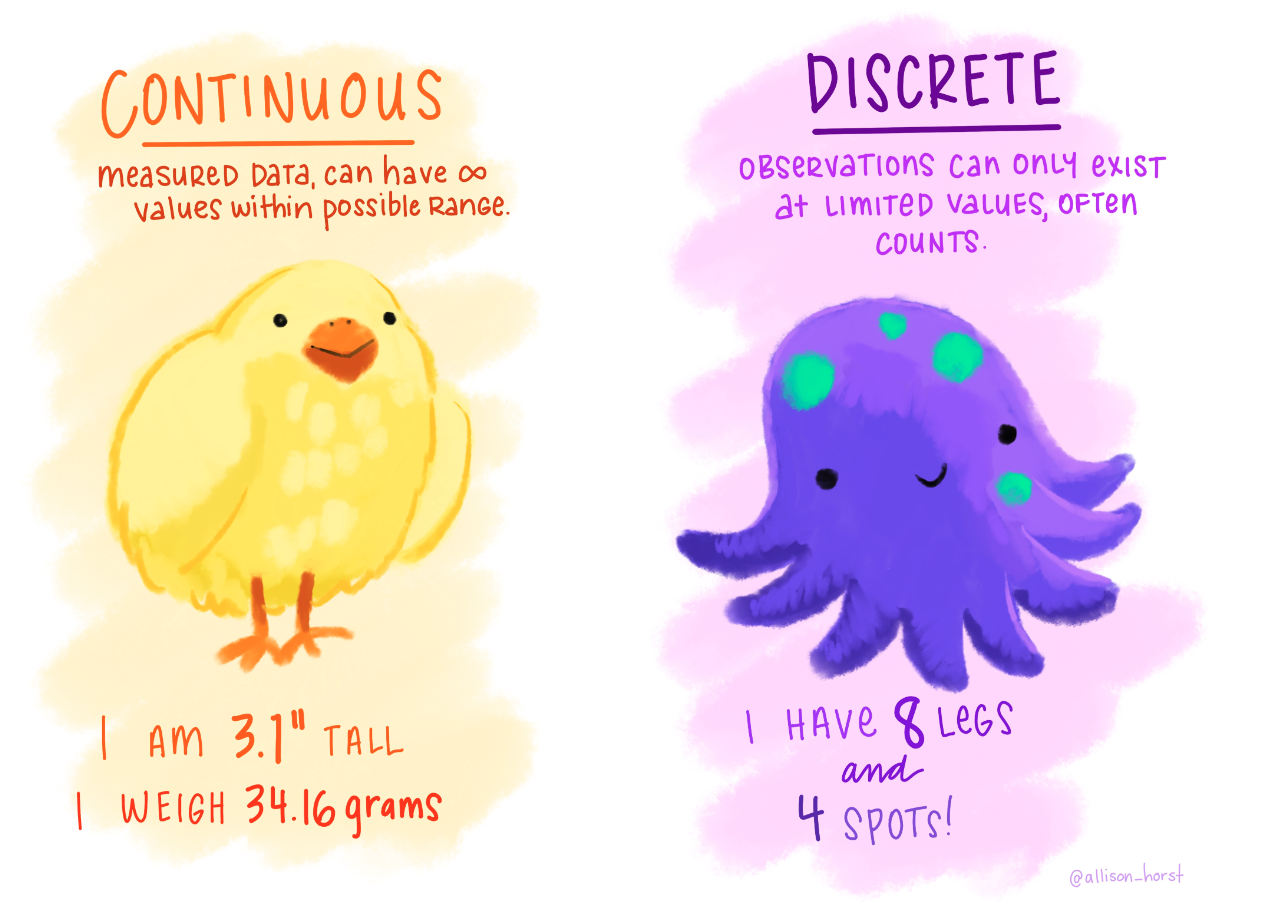 CONTINUOUS
measured data, can have ∞
values within possible range.
I AM 3.1" TALL
I WEIGH 34.16 grams
DISCRETE
OBSERVATIONS CAN ONLY EXIST
at LIMITED VALUES, OFTEN
COUNTS.
I HAVE 8 LEGS
and
4 SPOTS!
@allison_horst